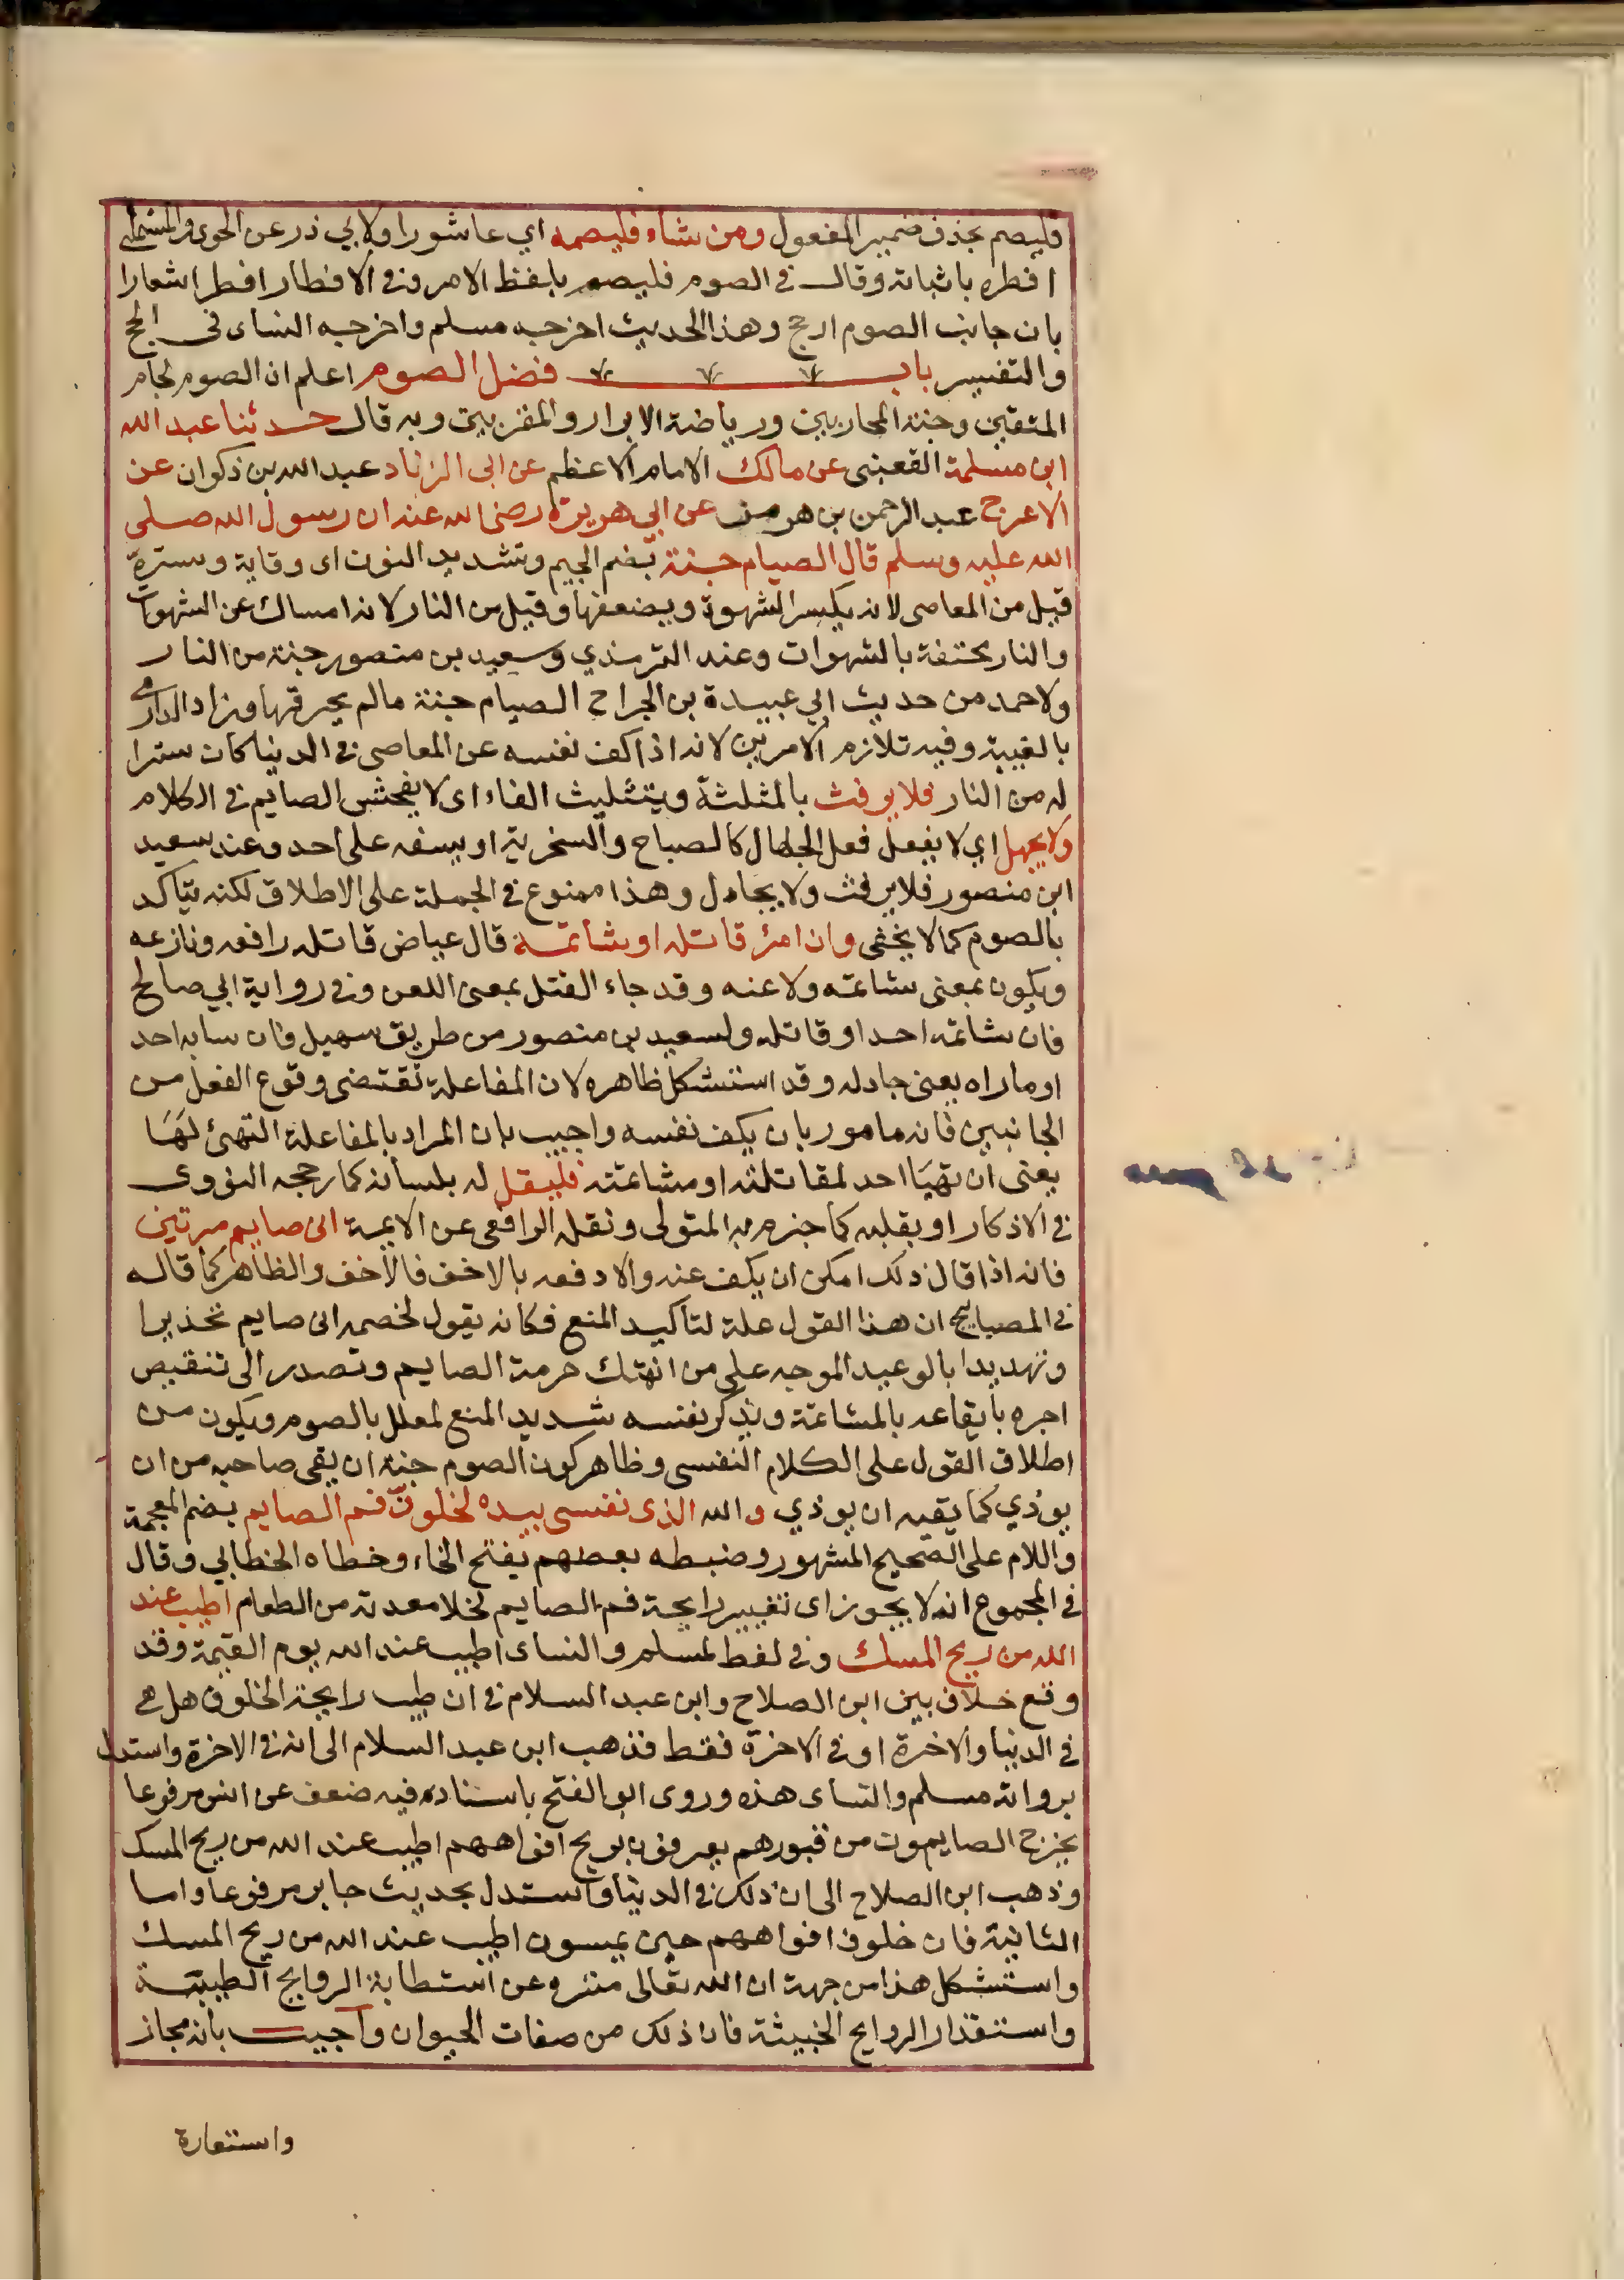 فليصم بحذف ضمير المفعول ومن شاء فليصمه اي عاشورا ولابي ذر عن الحموي والمستملي
افطره باثباته وقال في الصوم فليصم بلفظ الامر وفي الافطار افطر اشعارا
بان جانب الصوم ارجح وهذا الحديث اخرجه مسلم واخرجه النساى في الحج
والتفسير باب فضل الصوم اعلم ان الصوم لجام
المتقين وجنة المحاربين ورياضة الابرار والمقربين وبه قال حدثنا عبد الله
ابن مسلمة القعنبى عن مالك الامام الاعظم عن ابى الزناد عبد الله بن ذكوان عن
الاعرج عبد الرحمن بن هرمز عن ابي هريرة رضى الله عنه ان رسول الله صلى
الله عليه وسلم قال الصيام جنة بضم الجيم وتشديد النون اى وقاية وسترة
قيل من المعاصى لانه يكسر الشهوة ويضعفها وقيل من النار لانه امساك عن الشهوات
والنار محتفة بالشهوات وعند الترمذي وسعيد بن منصور جنة من النار
ولاحمد من حديث ابي عبيدة بن الجراح الصيام جنة مالم يخرقها وزاد الدارمي
بالغيبة وفيه تلازم الامرين لانه اذا كف نفسه عن المعاصى في الدنيا كان سترا
له من النار فلا يرفث بالمثلثة وبتثليث الفاء اى لا يفحش الصايم في الكلام
ولا يجهل اي لا يفعل فعل الجهال كالصياح والسخرية او يسفه على احد وعند سعيد
ابن منصور فلا يرفث ولا يجادل وهذا ممنوع في الجملة على الاطلاق لكنه يتاكد
بالصوم كما لا يخفى وان امرؤ قاتله او شاتمه قال عياض قاتله دافعه ونازعه
ويكون بمعنى شاتمه ولاعنه وقد جاء القتل بمعنى اللعن وفي رواية ابي صالح
فان شاتمه احد او قاتله ولسعيد بن منصور من طريق سهيل فان سابه احد
او ماراه يعنى جادله وقد استشكل ظاهره لان المفاعلة تقتضى وقوع الفعل من
الجانبين فانه مامور بان يكف نفسه واجيب بان المراد بالمفاعلة التهئ لها
يعنى ان تهيا احد لمقاتلته او مشاتمته فليقل له بلسانه كما رجحه النووى
في الاذكار او بقلبه كما جزم به المتولى ونقله الرافعى عن الايمة انى صايم مرتين
فانه اذا قال ذلك امكن ان يكف عنه والا دفعه بالاخف فالاخف والظاهر كما قاله
في المصابيح ان هذا القول علة لتاكيد المنع فكانه يقول لخصمه انى صايم تحذيرا
وتهديدا بالوعيد الموجه على من انتهك حرمة الصايم وتصدر الى تنقيص
اجره بايقاعه بالمشاتمة ويذكر نفسه شديد المنع لمعلل بالصوم ويكون من
اطلاق القول على الكلام النفسى وظاهر كون الصوم جنة ان يقى صاحبه من ان
يوذي كما يقيه ان يوذي والله الذى نفسى بيده لخلوف فم الصايم بضم المعجمة
واللام على الصحيح المشهور وضبطه بعضهم بفتح الخاء وخطاه الخطابي وقال
في المجموع انه لا يجوز اى تغيير رايحة فم الصايم لخلا معدته من الطعام اطيب عند
الله من ريح المسك وفي لفظ لمسلم والنساى اطيب عند الله يوم القيمة وقد
وقع خلاف بين ابن الصلاح وابن عبد السلام في ان طيب رايحة الخلوف هل هي
في الدنيا والاخرة او في الاخرة فقط فذهب ابن عبد السلام الى انه في الاخرة واستدل
برواية مسلم والنساى هذه وروى ابو الفتح باسناده فيه ضعف عن انس مرفوعا
يخرج الصايمون من قبورهم يعرفون بريح افواههم اطيب عند الله من ريح المسك
وذهب ابن الصلاح الى ان ذلك في الدنيا واستدل بحديث جابر مرفوعا واما
الثانية فان خلوف افواههم حين يمسون اطيب عند الله من ريح المسك
واستشكل هذا من جهة ان الله تعالى منزه عن استطابة الروايح الطيبة
واستقذار الروايح الخبيثة فان ذلك من صفات الحيوان واجيب بانه مجاز
واستعارة